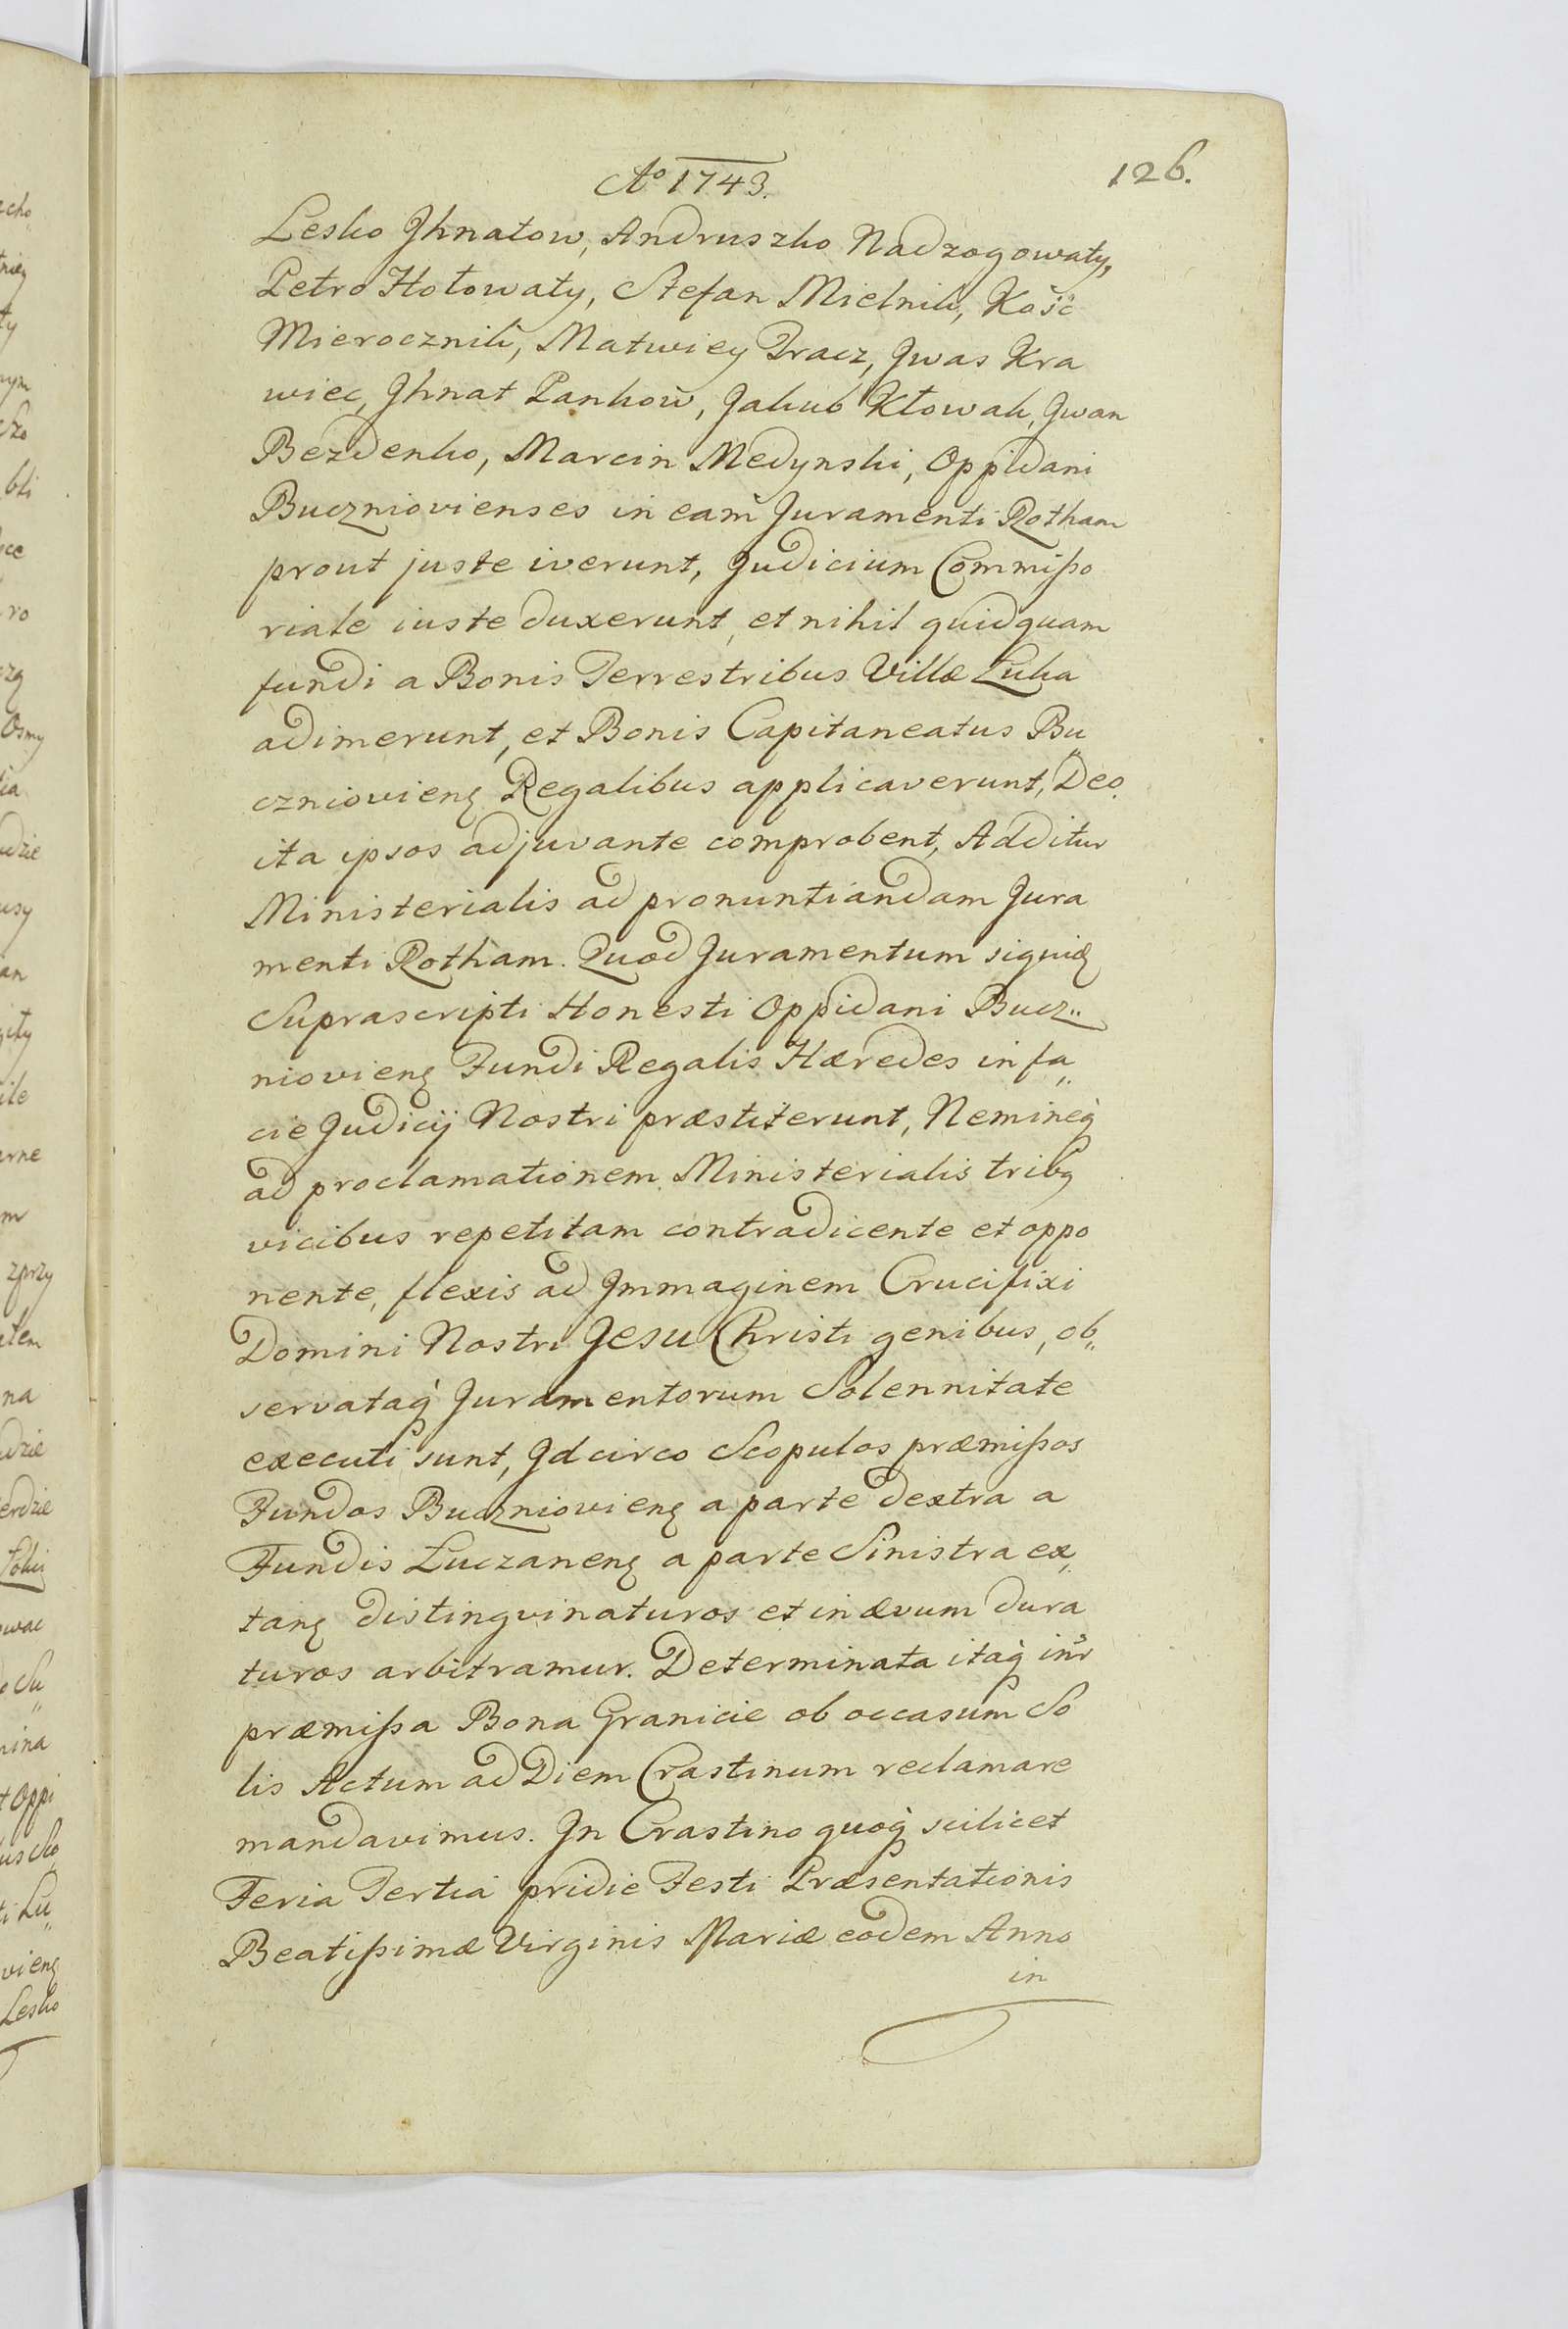 126.
Ao 1743.
Lesko Jhnatow, Andruszko Nadzogowaty,
Petro Hołowaty, Stefan Mielnik, Kość
Mierocznik, Matwiey Tracz, Jwas Kra
wiec, Jhnat Pankow, Jakub Kłowak, Jwan
Bezdenko, Marcin Medynski, Oppidani
Buczniovienses in eam Juramenti Rotham
prout juste iverunt, Judicium Commißo
riale iuste duxerunt, et nihil quidquam
fundi a Bonis Terrestribus Villæ Łuka
adimerunt, et Bonis Capitaneatus Bu„
czniovienẹ Regalibus applicaverunt, Deo
ita ipsos adjuvante comprobent, Additur
Ministerialis ad pronuntiandam Jura
menti Rotham. Quod Juramentum siquidẹ
Suprascripti Honesti Oppidani Bucz„
niovienẹ Fundi Regalis Hæredes in fa„
cie Judicij Nostri præstiterunt, Nemineq̀
ad proclamationem Ministerialis tribꝯ
vicibus repetitam contradicente et oppo
nente, flexis ad Jmmaginem Crucifixi
Domini Nostri JESU Christi genibus, ob„
servataq̀ Juramentorum Solennitate
executi sunt, Jdcirco Scopulos præmißos
Fundos Buczniovienẹ a parte dextra a
Fundis Łuczanenẹ a parte Sinistra ex„
tanẹ distingvinaturos et in ævum dura
turos arbitramur. Determinata itaq̀ inr̃
præmißa Bona Granicie ob occasum So
lis Actum ad Diem Crastinum reclamare
mandavimus. Jn Crastino quoq̀ scilicet
Feria Tertia pridie Festi Præsentationis
Beatißimæ Virginis Mariæ eodem Anno
in